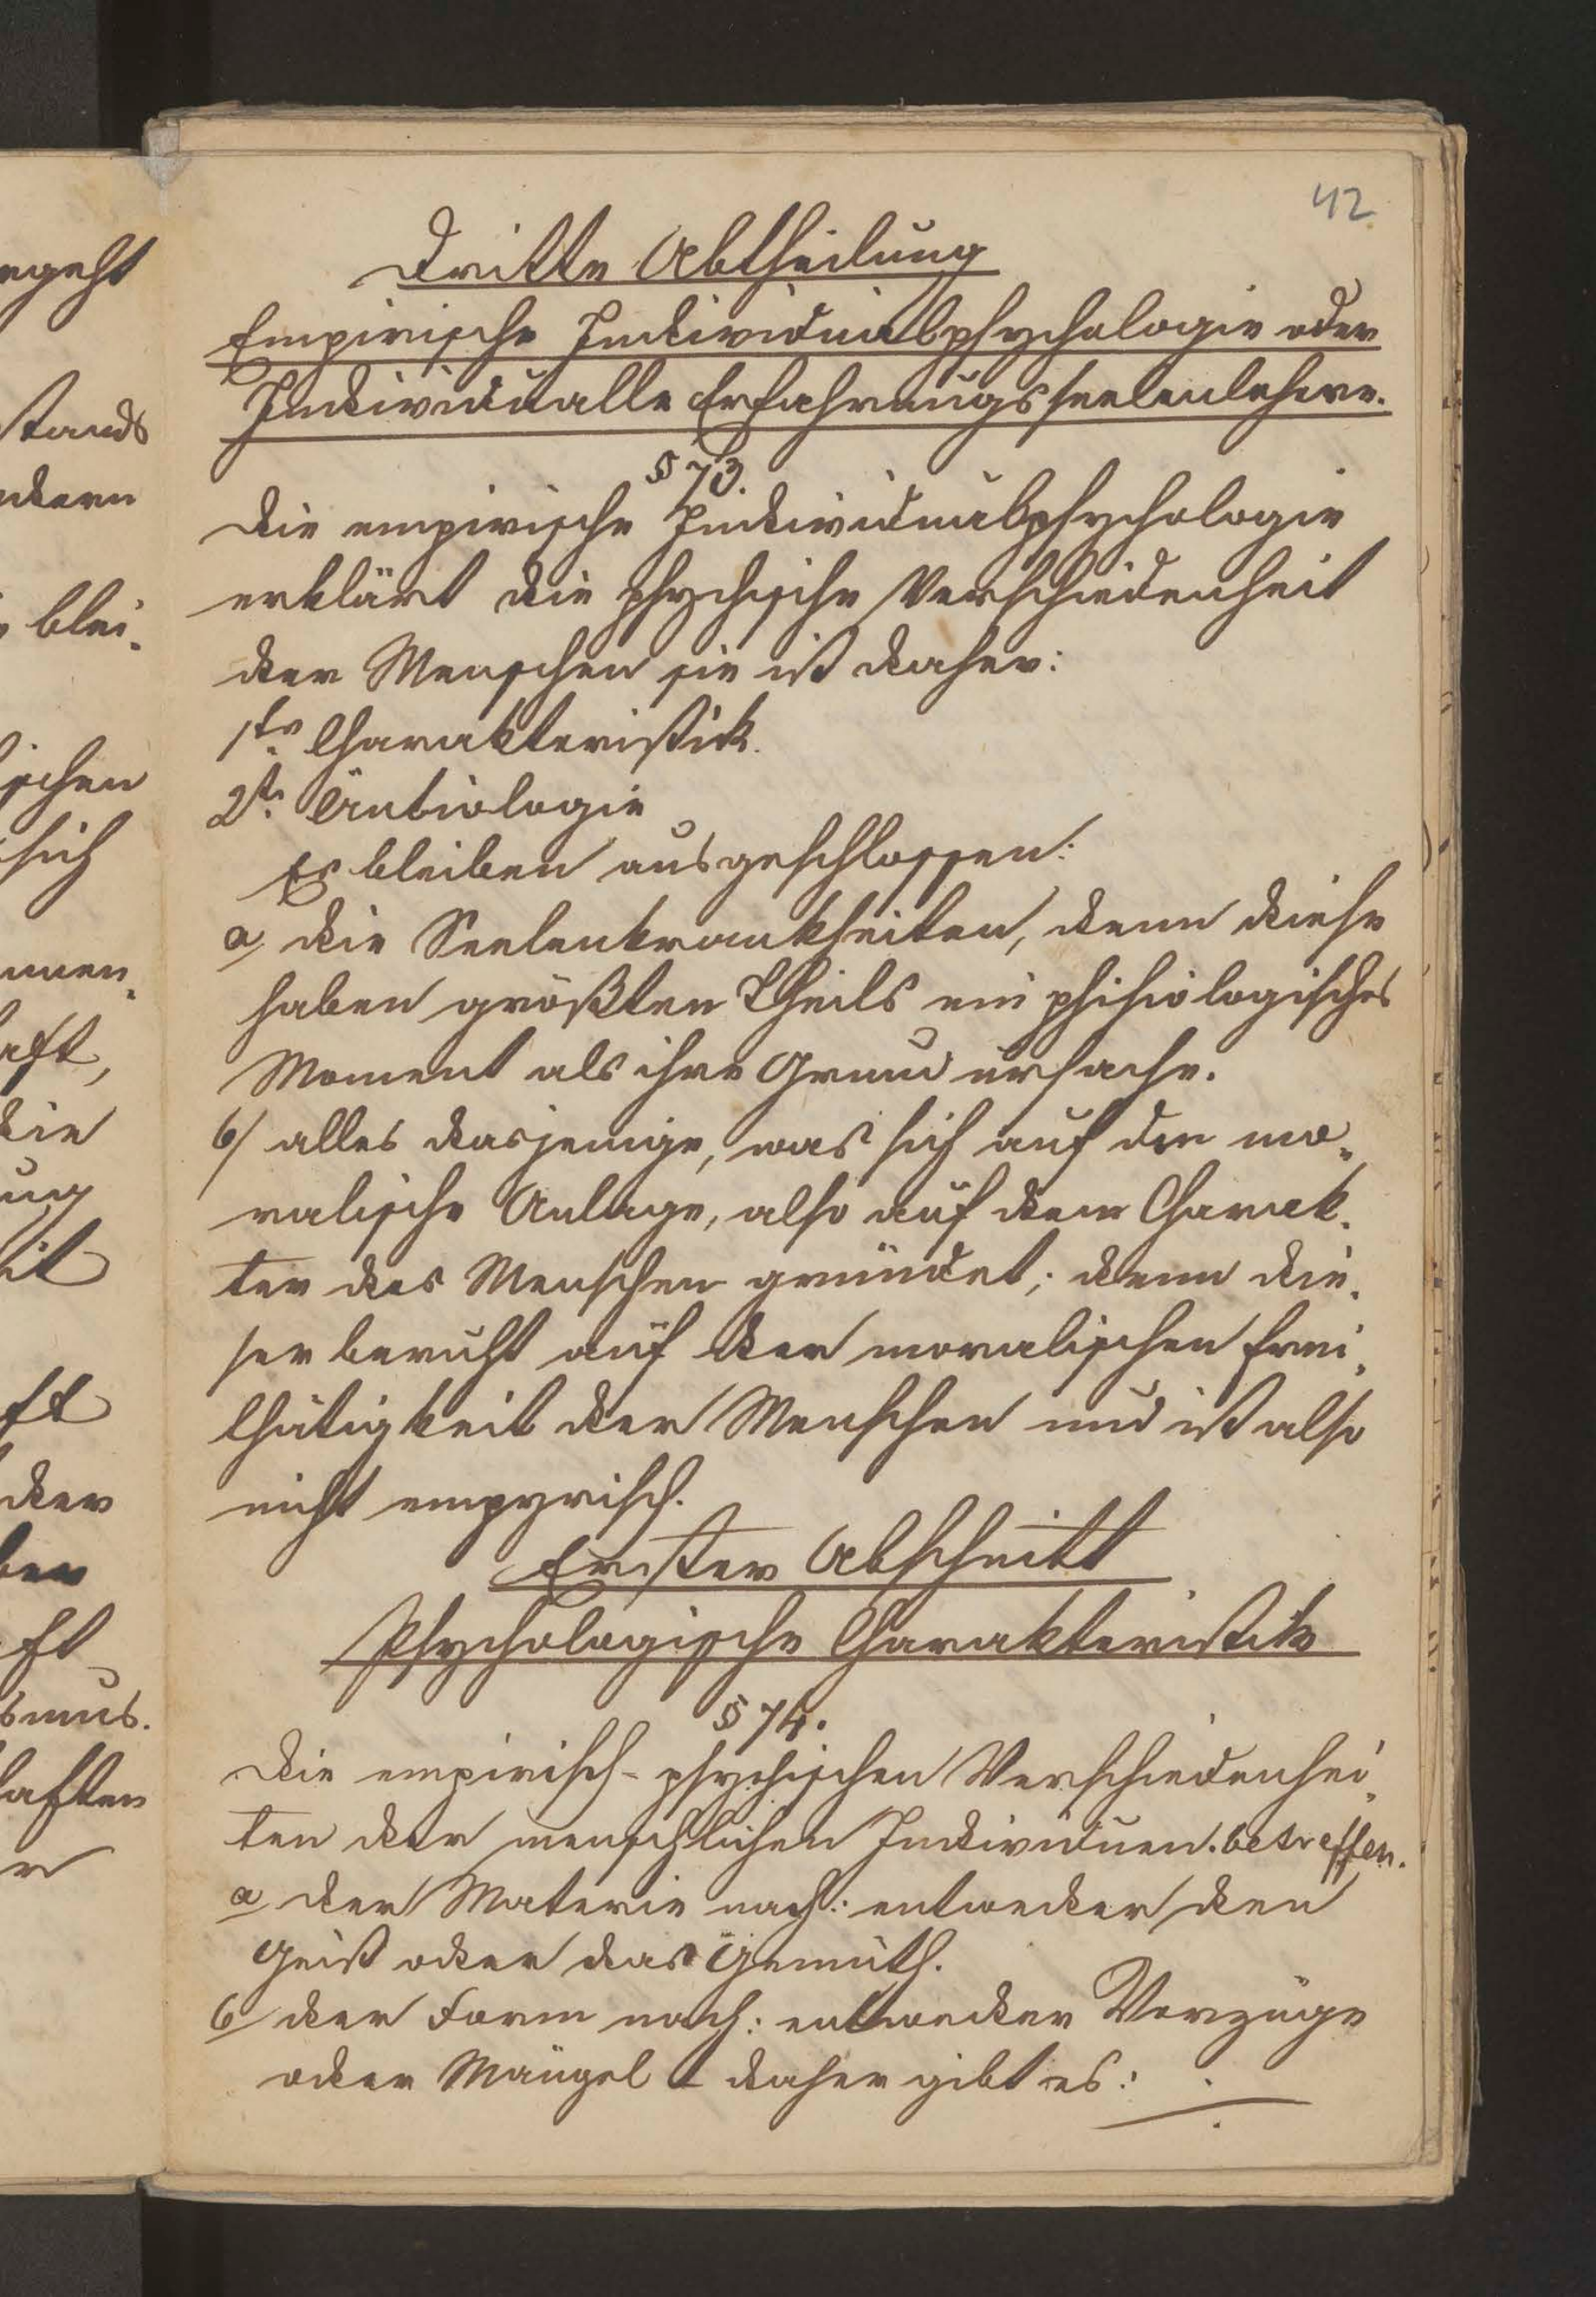 42
Dritte Abtheilung
Empirische Individualpsychologie oder
Individualle Erfahrungsseelenlehre.
§ 73.
Die empirische Individualpsychologie
erklärt die psychische Verschiedenheit
der Menschen sie ist daher:
1te Charakteristik.
2te
Es bleiben ausgeschlossen:
a, die Seelenkrankheiten, denn diese
haben größten Theils ein phisiologisches
Moment als ihre Grund ursache.
b/ alles dasjenige, was sich auf die mo„
ralische Anlage, also auf dem Charak„
ter des Menschen gründet; denn die„
ser beruht auf der moralischen Frei„
thätigkeit der Menschen und ist also
nicht empyrisch.
Erster Abschnitt
Psychologische Charakteristik
§ 74.
Die empirisch-psychischen Verschiedenhei„
ten der menschlichen Individuen betreffen.
a der Materie nach: entweder den
Geist oder das Gemüth.
b der Form nach: entweder Vorzüge
oder Mängel – daher gibt es:
egeht
stands
ndern
blei„
ischen
sich
nnen„
aft,
die
ung
it
ft
der
ben
ft
smus.
haften